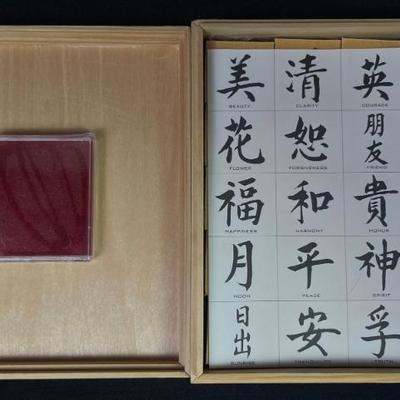 美 清 英
BEAUTY CLARITY COURAGE
花 恕 朋友
FLOWER FORGIVENESS FRIEND
福 和 貴
HAPPINESS HARMONY HONOR
月 平 神
MOON PEACE SPIRIT
日出 安 孚
SUNRISE TRANQUILITY TRUTH